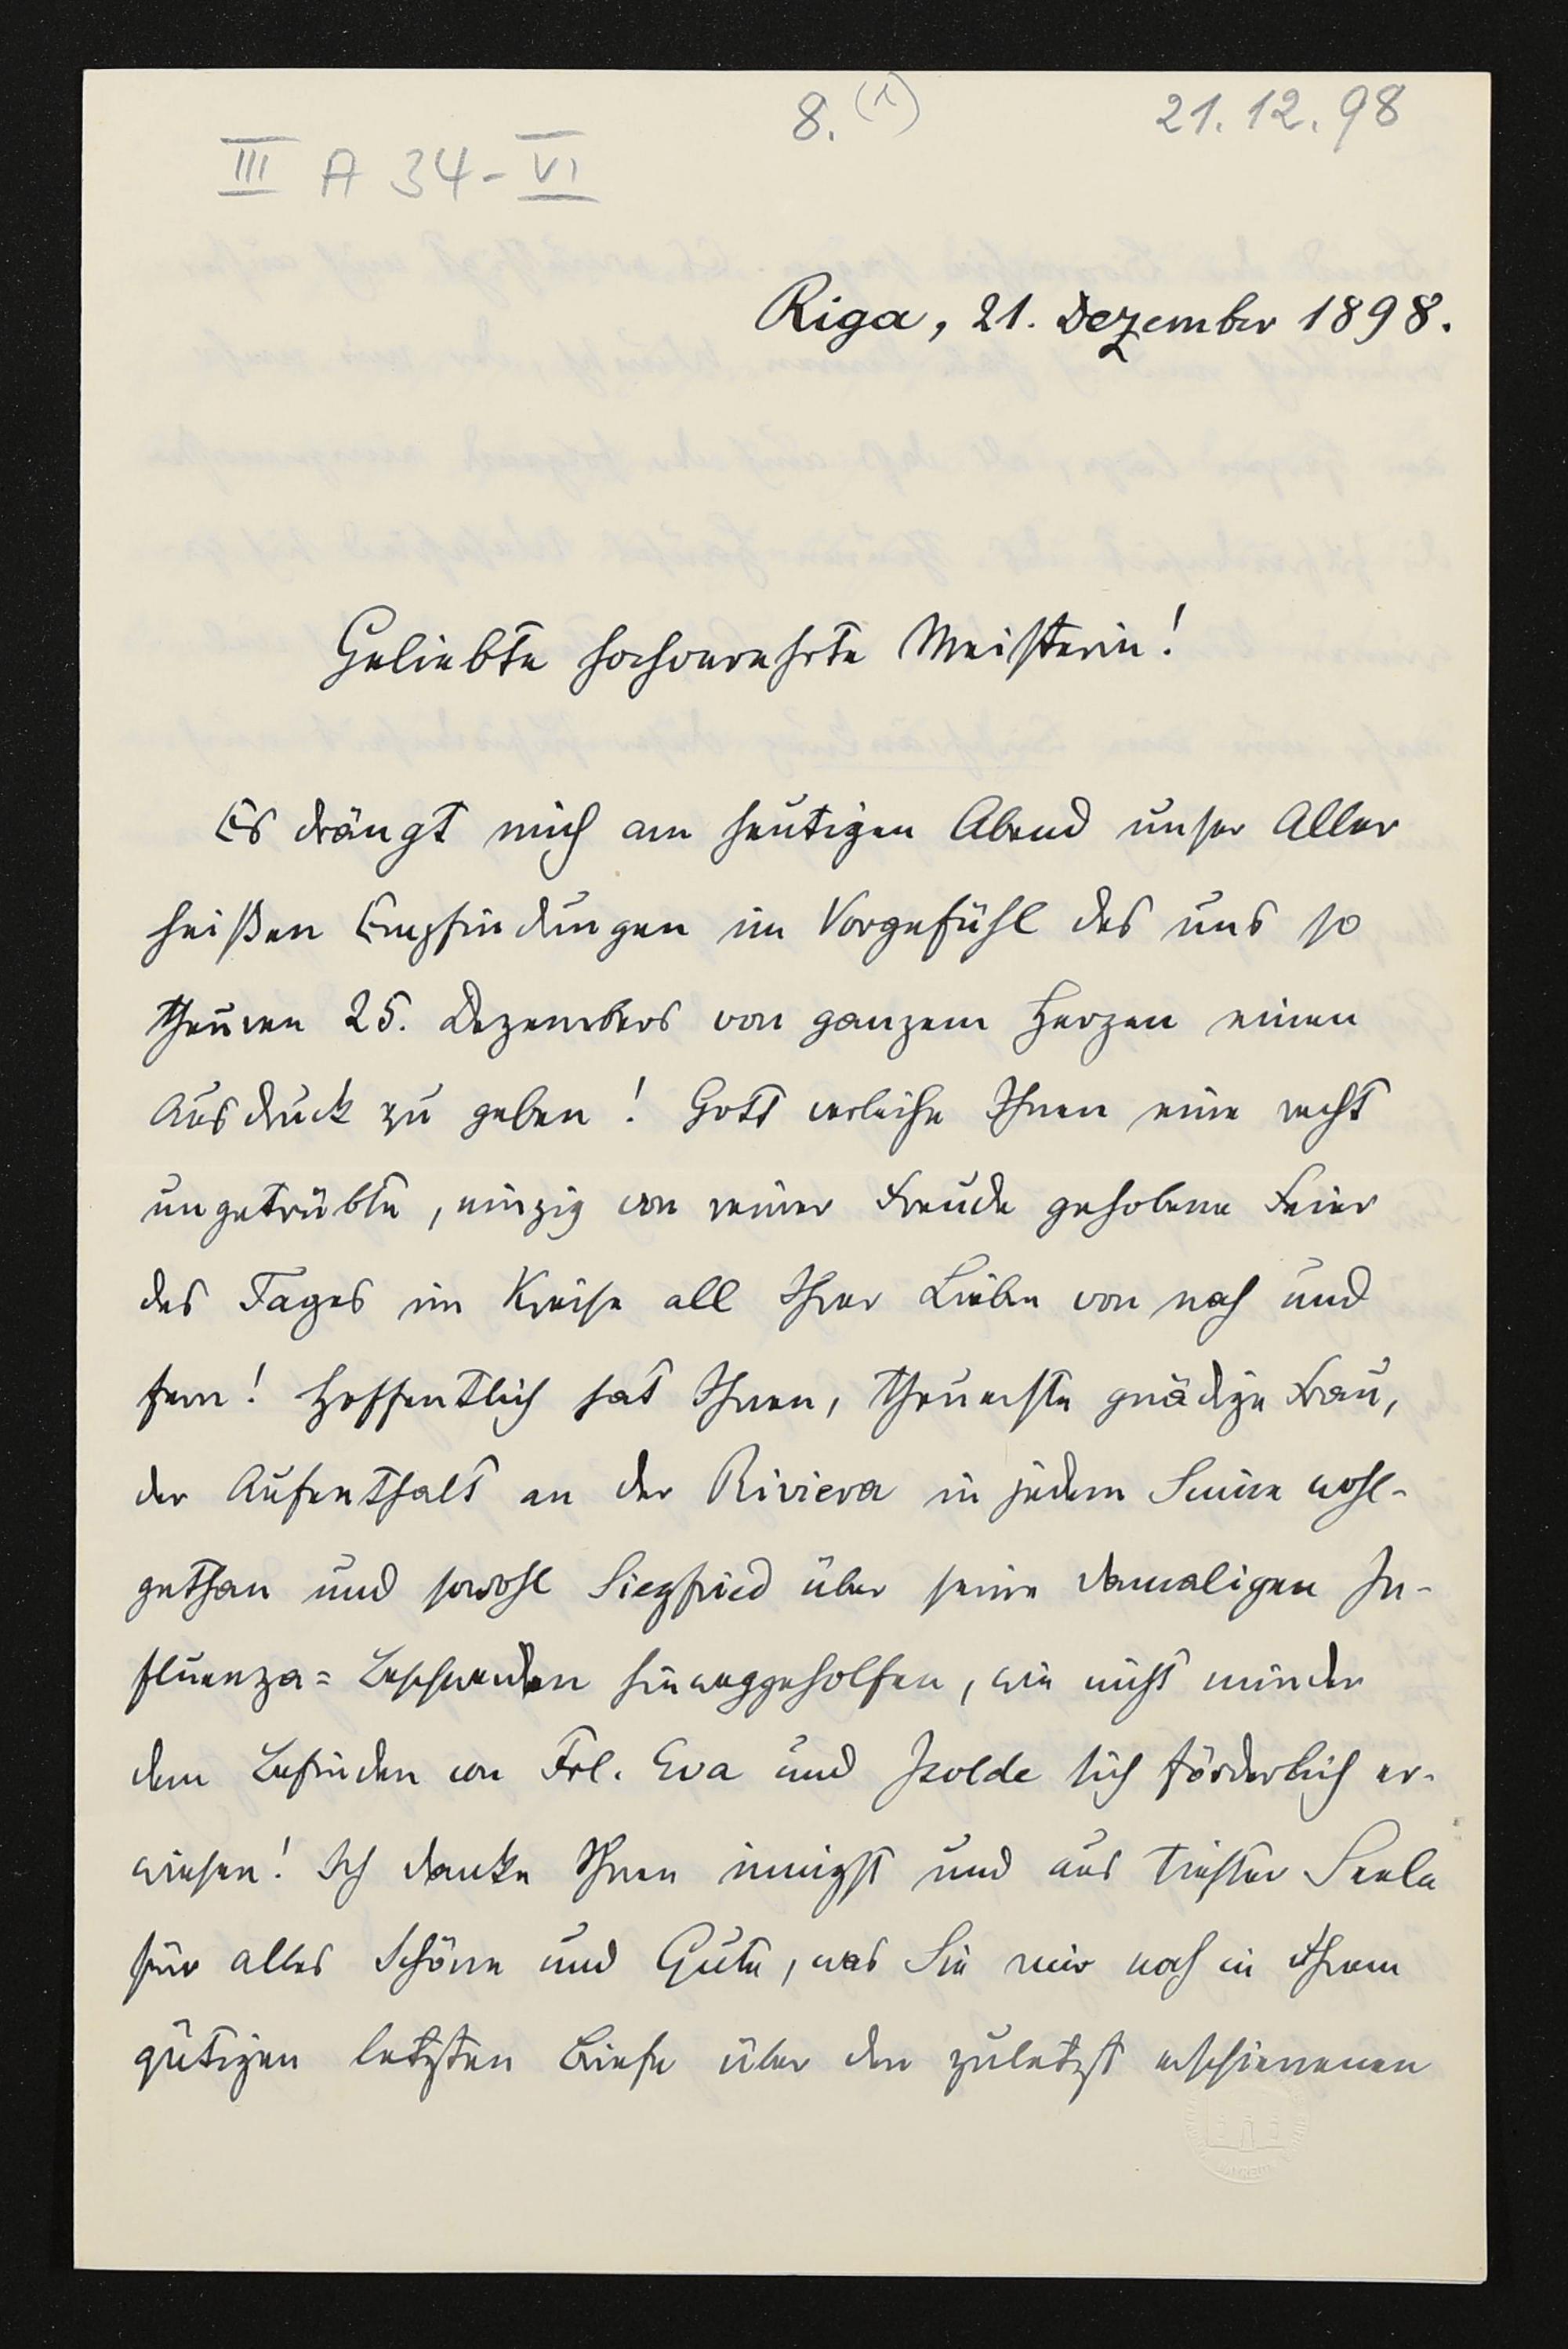 8. (1)
21.12.98
III A 34-VI
Riga, 21. Dezember 1898.
Geliebte hochverehrte Meisterin!
Es drängt mich am heutigen Abend unser Aller
heißen Empfindungen im Vorgefühl des uns so
theuren 25. Dezembers von ganzem Herzen einen
Ausdruck zu geben! Gott verleihe Ihnen eine recht
ungetrübte, einzig von reiner Freude gehobene Feier
des Tages im Kreise all Ihrer Lieben von nah und
fern! Hoffentlich hat Ihnen, theuerste gnädige Frau,
der Aufenthalt an der Riviera in jedem Sinne wohl-
gethan und sowohl Siegfried über seine damaligen In-
fluenza=Beschwerden hinweggeholfen, wie nicht minder
dem Befinden von Frl. Eva und Isolde sich förderlich er-
wiesen! Ich danke Ihnen innigst und aus tiefster Seele
für alles Schöne und Gute, was Sie mir noch in Ihrem
gütigen letzten Briefe über den zuletzt erschienenen